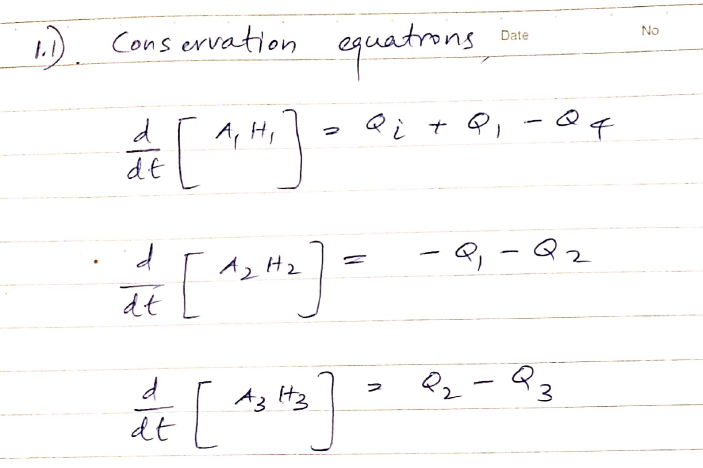 1.1). Conservation equatrons Date No
d/dt [ A₁ H₁ ] = Qi + Q₁ - Q4
d/dt [ A₂ H₂ ] = - Q₁ - Q₂
d/dt [ A₃ H₃ ] = Q₂ - Q₃